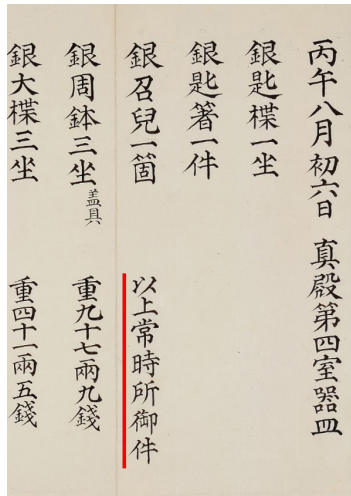 丙午八月初六日 真殿第四室器皿
銀匙楪一坐
銀匙箸一件
銀召兒一箇 以上常時所御件
銀周鉢三坐 盖具 重九十七兩九錢
銀大楪三坐 重四十一兩五錢